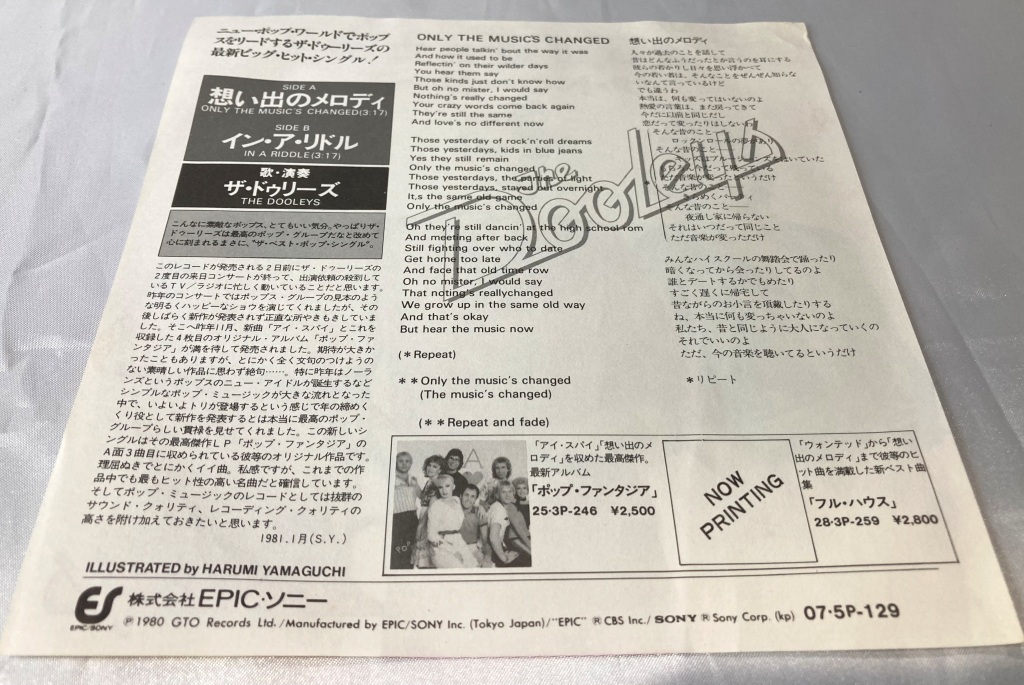 ニュー・ポップ・ワールドでポップ
スをリードするザ・ドゥーリーズの
最新ビッグ・ヒット・シングル!
SIDE A
想い出のメロディ
ONLY THE MUSIC'S CHANGED(3:17)
SIDE B
イン・ア・リドル
IN A RIDDLE(3:17)
歌・演奏
ザ・ドゥリーズ
THE DOOLEYS
こんなに素敵なポップス、とてもいい気分。やっぱりザ・
ドゥーリーズは最高のポップ・グループだなと改めて
心に刻まれるまさに、"ザ・ベスト・ポップ・シングル"。
このレコードが発売される2日前にザ・ドゥーリーズの
2度目の来日コンサートが終って、出演依頼の殺到して
いるTV/ラジオに忙しく動いていることだと思います。
昨年のコンサートではポップス・グループの見本のよう
な明るくハッピーなショウを演じてくれましたが、その
後しばらく新作が発売されず正直な所やきもきしていま
した。そこへ昨年11月、新曲「アイ・スパイ」とこれを
収録した4枚目のオリジナル・アルバム「ポップ・ファ
ンタジア」が満を待して発売されました。期待が大きか
ったこともありますが、とにかく全く文句のつけようの
ない素晴しい作品に思わず絶句……。特に昨年はノーラ
ンズというポップスのニュー・アイドルが誕生するなど
シンプルなポップ・ミュージックが大きな流れとなった
中で、いよいよトリが登場するという感じで年の締めく
くり役として新作を発表するとは本当に最高のポップ・
グループらしい貫禄を見せてくれました。この新しいシ
ングルはその最高傑作LP「ポップ・ファンタジア」の
A面3曲目に収められている彼等のオリジナル作品です。
理屈ぬきでとにかくイイ曲。私感ですが、これまでの作
品中でも最もヒット性の高い名曲だと確信しています。
そしてポップ・ミュージックのレコードとしては抜群の
サウンド・クォリティ、レコーディング・クォリティの
高さを附け加えておきたいと思います。
1981.1月(S.Y.)
ILLUSTRATED by HARUMI YAMAGUCHI
ONLY THE MUSIC'S CHANGED
Hear people talkin' bout the way it was
And how it used to be
Reflectin' on their wilder days
You hear them say
Those kinds just don't know how
But oh no mister, I would say
Nothing's really changed
Your crazy words come back again
They're still the same
And love's no different now
Those yesterday of rock'n'roll dreams
Those yesterdays, kids in blue jeans
Yes they still remain
Only the music's changed
Those yesterdays, the of light
Those yesterdays, stayed out overnight
It,s the same old game
Only the music's changed
The Dooleys
Oh they're still dancin' at the high school rom
And meeting after back
Still fighting over who to date
Get home too late
And face that old time row
Oh no mister, I would say
That noting's reallychanged
We grow up in the same old way
And that's okay
But hear the music now
(*Repeat)
**Only the music's changed
(The music's changed)
(**Repeat and fade)
想い出のメロディ
人々が過去のことを話して
昔はどんなふうだったとか言うのを耳にする
彼らの若かりし日々を思い浮かべて
今の若い者は、そんなことをぜんぜん知らな
いなんて言っているけど
でも違うわ
本当は、何も変ってはいないのよ
熱愛の言葉は、また戻ってきて
今だに以前と同じだし
恋だって変ったりはしないわ
そんな昔のこと——
そんな昔のこと——
ただ音楽が変っただけ
夜通し家に帰らない
それはいつだって同じこと
ただ音楽が変っただけ
みんなハイスクールの舞踏会で踊ったり
暗くなってから会ったりしてるのよ
誰とデートするかでもめたり
すごく遅くに帰宅して
昔ながらのお小言を頂戴したりする
ね、本当に何も変っちゃいないのよ
私たち、昔と同じように大人になっていくの
それでいいのよ
ただ、今の音楽を聴いてるというだけ
*リピート
「アイ・スパイ」「想い出のメ
ロディ」を収めた最高傑作。
最新アルバム
「ポップ・ファンタジア」
25・3P-246 ¥2,500
NOW
PRINTING
「ウォンテッド」から「想い
出のメロディ」まで彼等のヒ
ット曲を満載した新ベスト曲
集
「フル・ハウス」
28・3P-259 ¥2,800
ES
EPIC/SONY
株式会社EPIC・ソニー
Ⓟ 1980 GTO Records Ltd./Manufactured by EPIC/SONY Inc. (Tokyo Japan)/"EPIC" ® CBS Inc./SONY ® Sony Corp. (kp) 07・5P-129